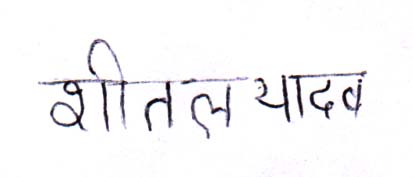 शीतल यादव